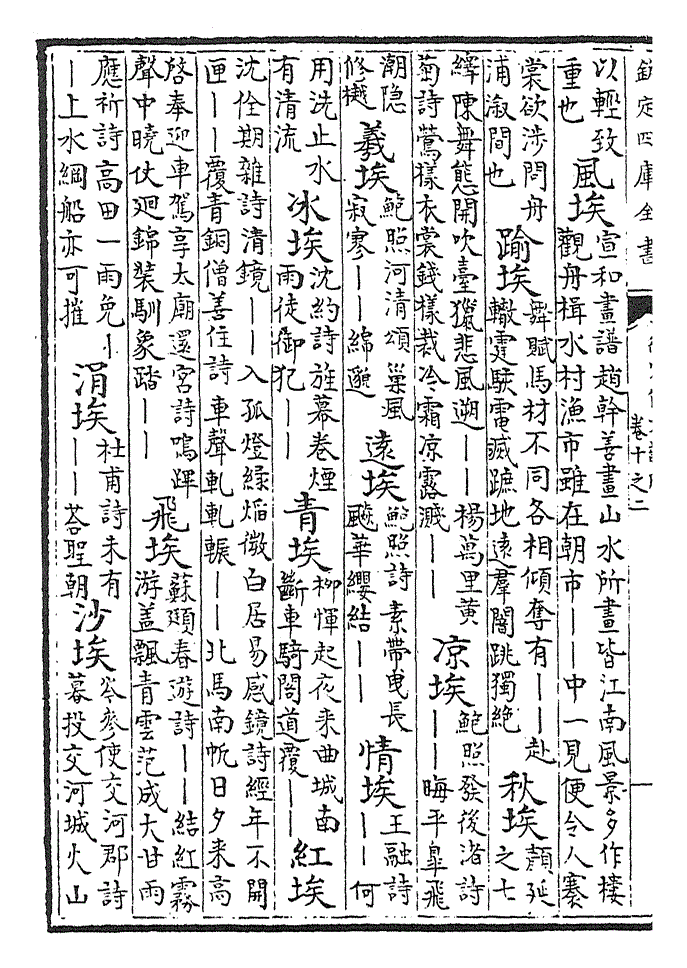 欽定四庫全書
卷十之二
以輕致
重也
風埃
宣和畫譜趙幹善畫山水所畫皆江南風景多作樓
觀舟楫水村漁市雖在朝市——中一見便令人褰
裳欲涉問舟
浦漵間也
踰埃
舞賦馬材不同各相傾奪有——赴
轍霆駭電滅蹠地遠羣闇跳獨絶
秋埃
顔延
之七
繹陳舞態開吹臺獵悲風遡——楊萬里黄
菊詩鶯様衣裳錢様裁冷霜凉露濺——
凉埃
鮑照發後渚詩
——晦平臯飛
潮隠
修樾
羲埃
鮑照河清頌巢風
寂寥——綿邈
遠埃
鮑照詩素帶曳長
飈華纓結——
情埃
王融詩
——何
用洗止水
有清流
冰埃
沈約詩旌幕卷煙
雨徒御犯——
青埃
柳惲起夜来曲城南
斷車騎閣道覆——
紅埃
沈佺期雜詩清鏡——入孤燈緑焰微白居易感鏡詩經年不開
匣——覆青銅僧善住詩車聲軋軋輾——北馬南帆日夕来高
啓奉迎車駕享太廟還宫詩鳴蹕
聲中曉仗廻錦裝馴象踏——
飛埃
蘇頲春遊詩——結紅霧
游盖飄青雲范成大甘雨
應祈詩高田一雨免—
—上水綱船亦可摧
涓埃
杜甫詩未有
——荅聖朝
沙埃
岑參使交河郡詩
暮投交河城火山